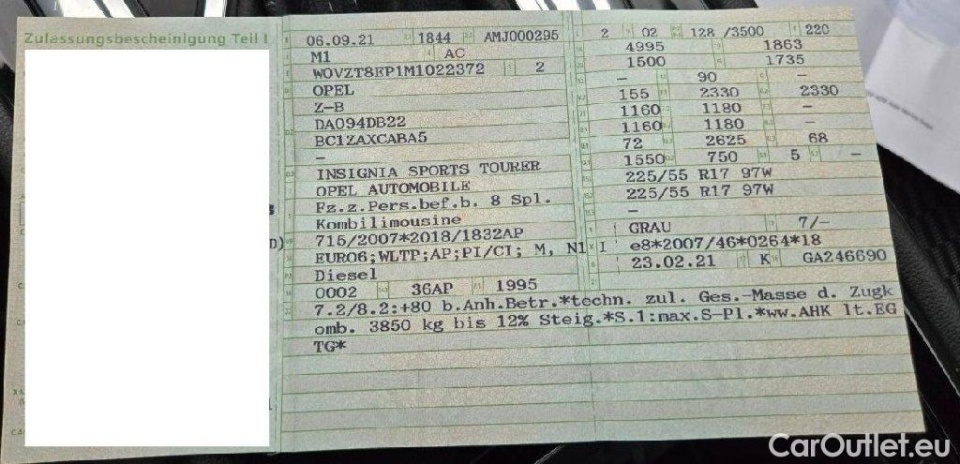 Zulassungsbescheinigung Teil I
06.09.21 1844 AMJ000295
M1 AC
W0VZT8EP1M1022372 2
OPEL
Z-B
DA094DB22
BC1ZAXCABA5
–
INSIGNIA SPORTS TOURER
OPEL AUTOMOBILE
Fz.z.Pers.bef.b. 8 Spl.
Kombilimousine
715/2007*2018/1832AP
EURO6;WLTP;AP;PI/CI; M, N1 I
Diesel
0002 36AP 1995
2 02 128 /3500 220
4995 1863
1500 1735
– 90 –
155 2330 2330
1160 1180 –
1160 1180 –
72 2625 68
1550 750 5 –
225/55 R17 97W
225/55 R17 97W
–
GRAU 7/–
e8*2007/46*0264*18
23.02.21 K GA246690
7.2/8.2:+80 b.Anh.Betr.*techn. zul. Ges.-Masse d. Zugk
omb. 3850 kg bis 12% Steig.*S.1:max.S-Pl.*ww.AHK lt.EG
TG*
CarOutlet.eu